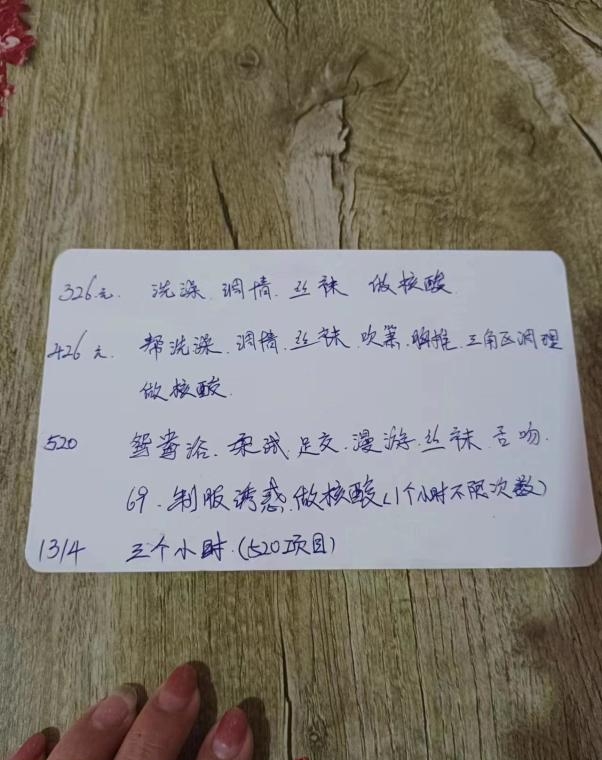 326元. 洗澡. 调情. 丝袜 做核酸.
426元. 帮洗澡. 调情. 丝袜. 吹箫. 胸推. 三角区调理
做核酸.
520 鸳鸯浴. 柔式. 足交. 漫游. 丝袜. 舌吻.
69. 制服诱惑. 做核酸(1个小时不限次数)
1314 三个小时.(520项目)